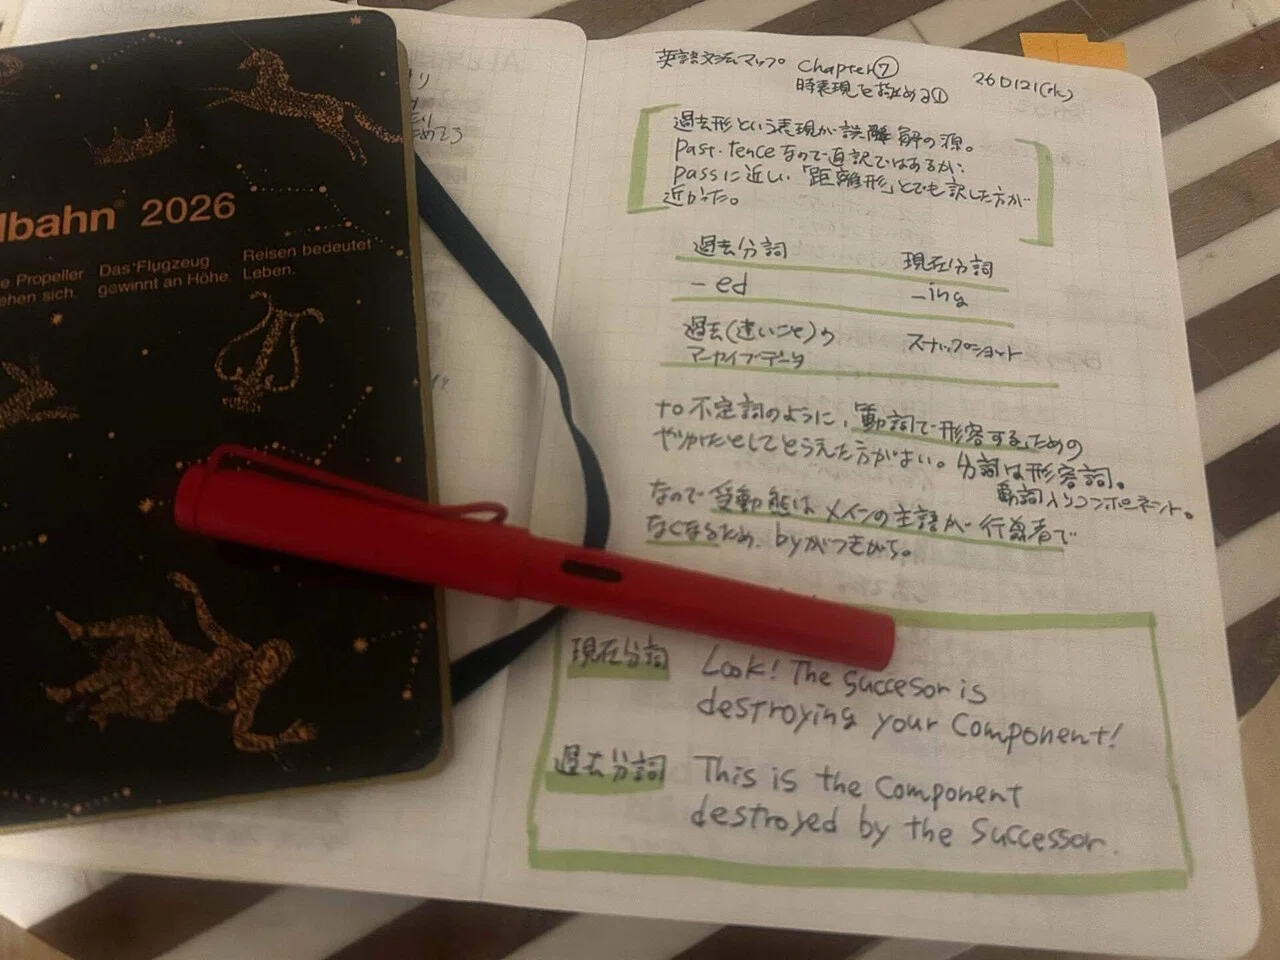 lbahn® 2026
e Propeller
ehen sich.
Das Flugzeug
gewinnt an Höhe.
Reisen bedeutet
Leben.
英語文法マップ Chapter⑦
時表現を極める①
過去形という表現が誤解の源。
past tenceなので直訳ではあるが、
passに近い「距離形」とでも訳した方が
近かった。
過去分詞 現在分詞
-ed -ing
過去(遠いこと)の スナップショット
アーカイブデータ
to不定詞のように、「動詞で形容する」ための
やりかたとしてとらえた方がよい。分詞は形容詞。
動詞入りコンポーネント。
なので受動態はメインの主語が行為者で
なくなるため、byがつきがち。
現在分詞 Look! The succesor is
destroying your component!
過去分詞 This is the component
destroyed by the successor.